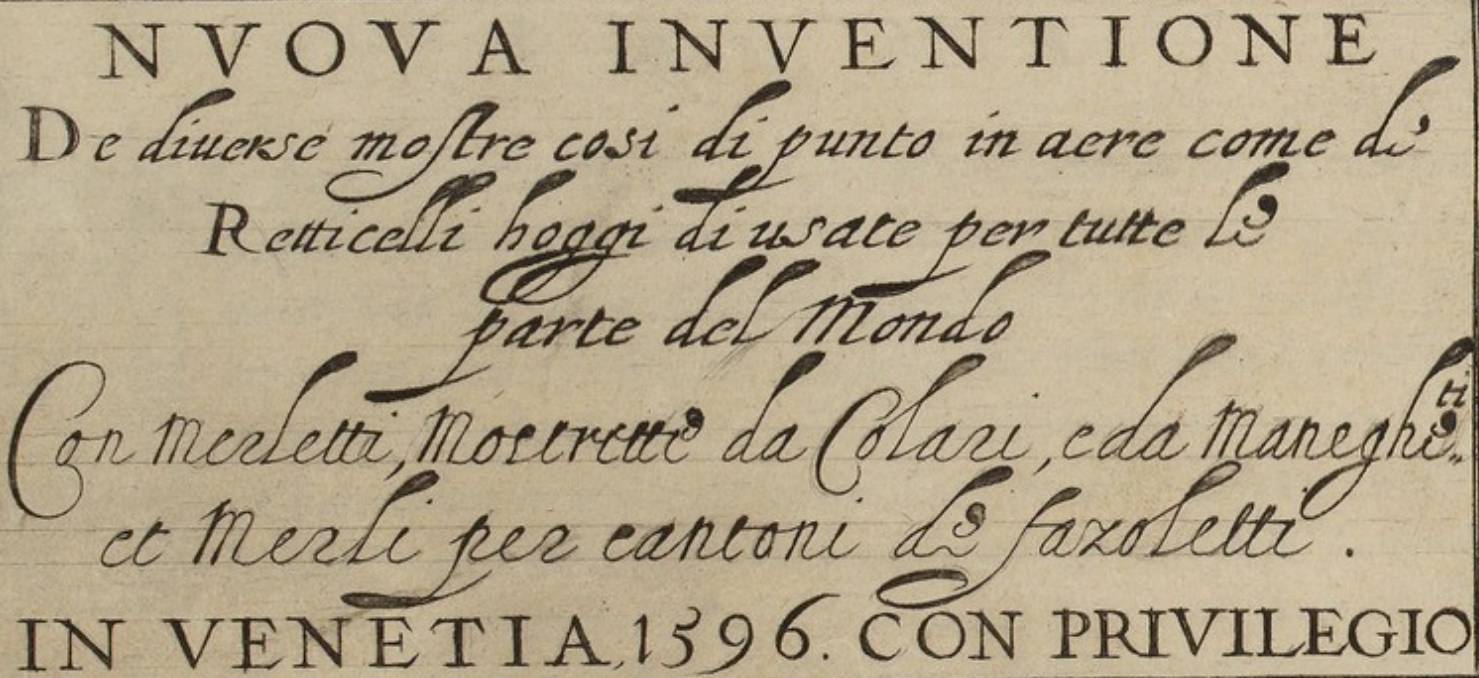 NVOVA INVENTIONE
De diuerse mostre cosi di punto in aere come di
Retticelli hoggi di usate per tutte le
parte del Mondo
Con Merletti, Mostrette da Colari, e da Maneghetti
et Merli per cantoni de fazoletti.
IN VENETIA, 1596. CON PRIVILEGIO